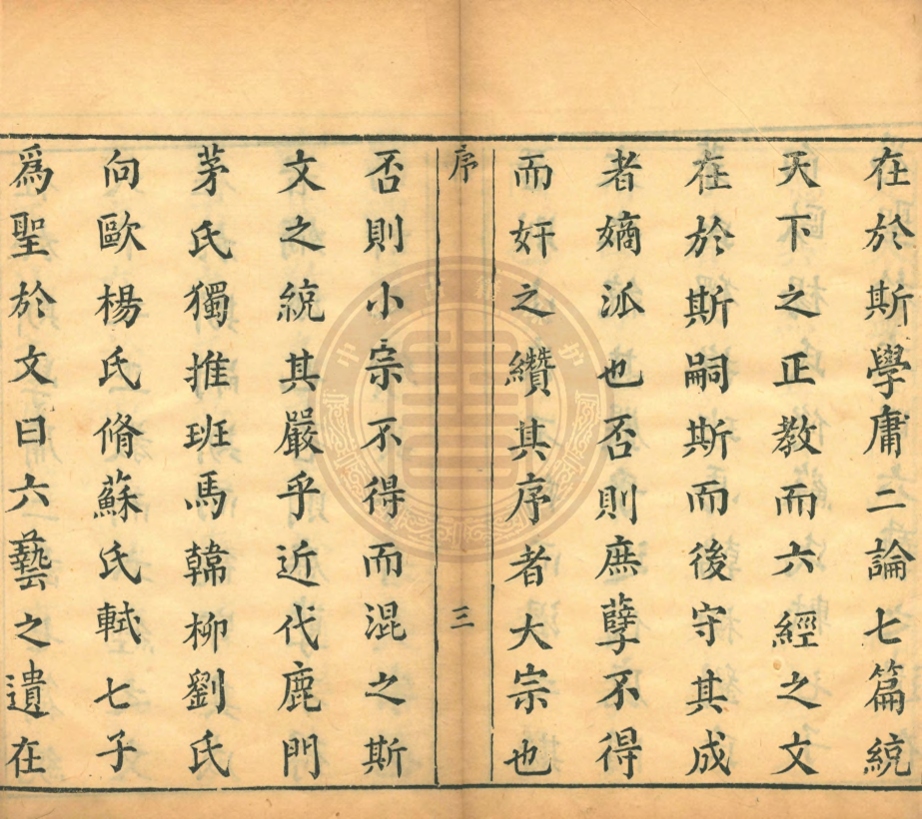 在於斯學庸二論七篇統
天下之正教而六經之文
在於斯嗣斯而後守其成
者嫡泒也否則庶孽不得
而奸之纘其序者大宗也
序 三
否則小宗不得而混之斯
文之統其嚴乎近代鹿門
茅氏獨推班馬韓柳劉氏
向歐楊氏脩蘇氏軾七子
爲聖於文曰六藝之遺在